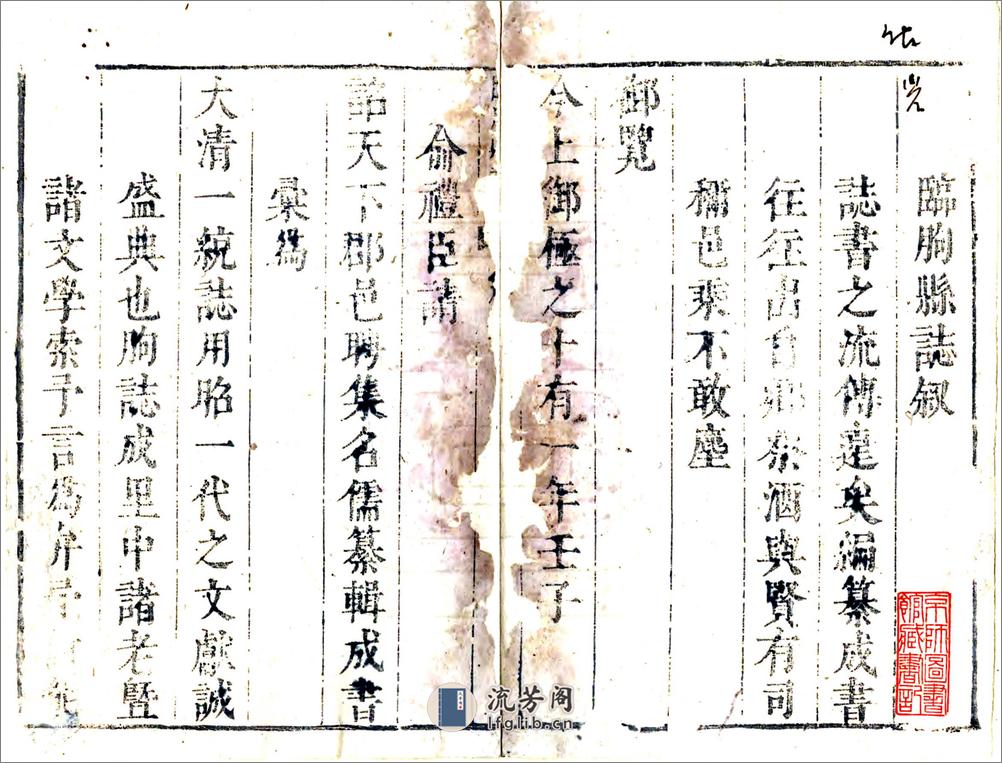 臨朐縣誌敘
誌書之流傳遠矣編纂成書
往往出自鄉祭酒與賢有司
稱邑乘不敢塵
御覽
今上御極之十有一年壬子
俞禮臣請
詔天下郡邑聘集名儒纂輯成書
彙為
大清一統誌用昭一代之文獻誠
盛典也朐誌成里中諸老暨
諸文學索予言為弁予
京師圖書
館藏書記
流芳阁
lfglib.cn